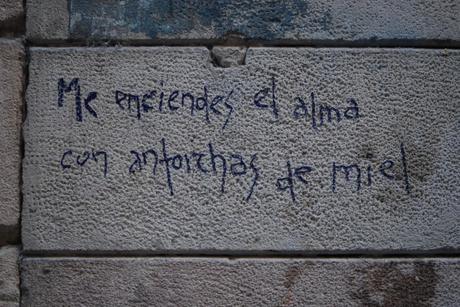 Me enciendes el alma
con antorchas de miel